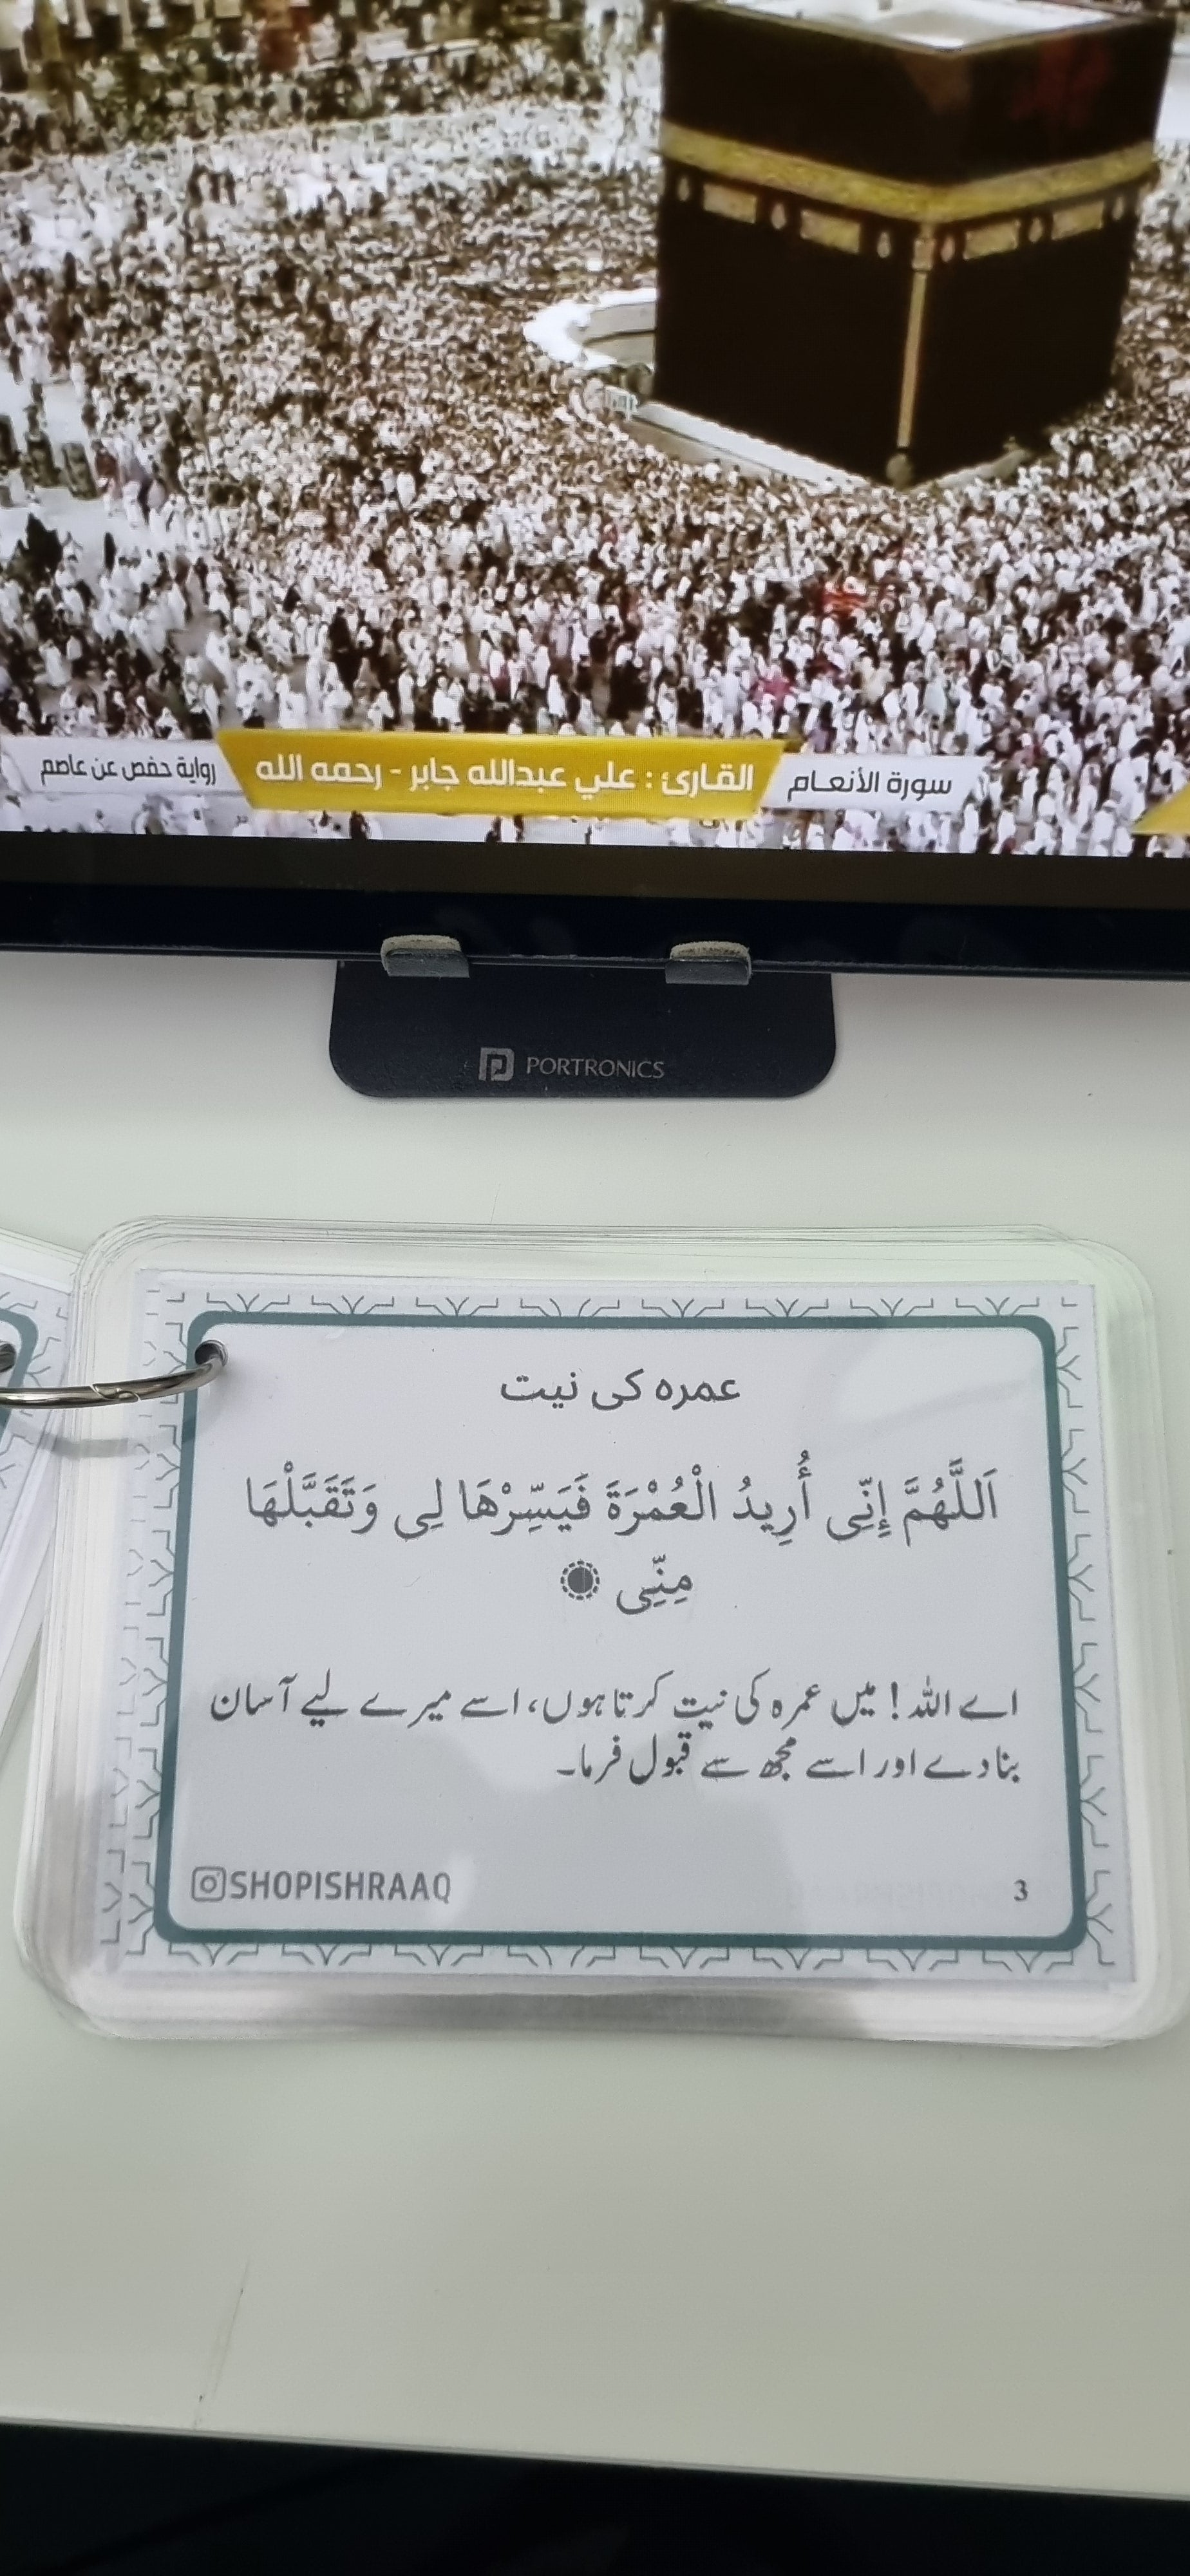 سورة الأنعام
القارئ : علي عبدالله جابر - رحمه الله
رواية حفص عن عاصم
PORTRONICS
عمرہ کی نیت
اَللَّهُمَّ إِنِّى أُرِيدُ الْعُمْرَةَ فَيَسِّرْهَا لِى وَتَقَبَّلْهَا
مِنِّى
اے اللہ! میں عمرہ کی نیت کرتا ہوں، اسے میرے لیے آسان
بنا دے اور اسے مجھ سے قبول فرما۔
SHOPISHRAAQ
3